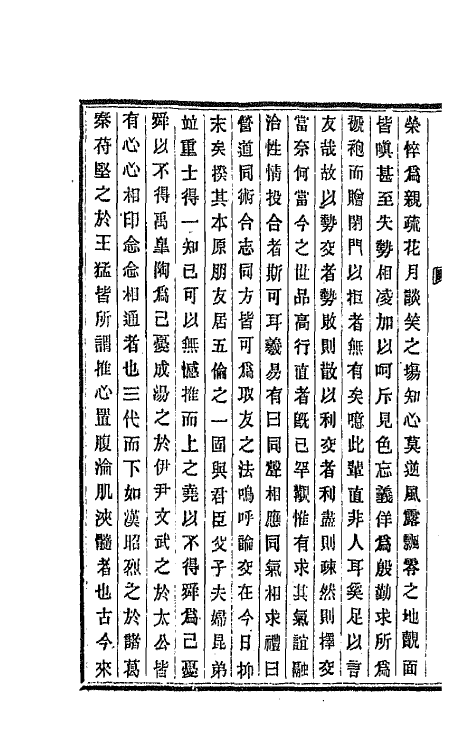 榮悴爲親疏花月談笑之塲知心莫逆風露飄零之地靦面
皆嗔甚至失勢相凌加以呵斥見色忘義佯爲殷勤求所爲
綈袍而贈閉門以拒者無有矣噫此輩直非人耳奚足以言
友哉故以勢交者勢敗則散以利交者利盡則疎然則擇交
當奈何當今之世品高行直者旣已罕覯惟有求其氣誼融
洽性情投合者斯可耳羲易有曰同聲相應同氣相求禮曰
營道同術合志同方皆可爲取友之法嗚呼論交在今日抑
末矣揆其本原朋友居五倫之一固與君臣父子夫婦昆弟
竝重士得一知已可以無憾推而上之堯以不得舜爲己憂
舜以不得禹臯陶爲己憂成湯之於伊尹文武之於太公皆
有心心相印念念相通者也三代而下如漢昭烈之於諸葛
秦苻堅之於王猛皆所謂推心置腹淪肌浹髓者也古今來